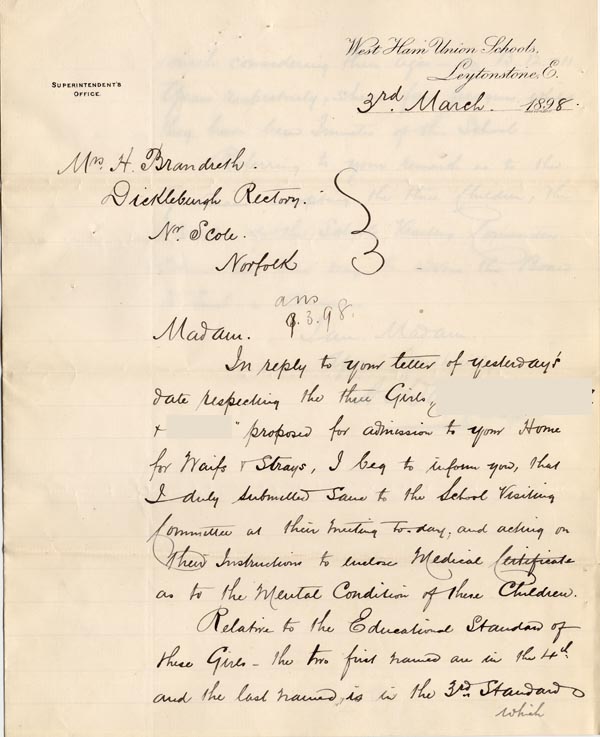 West Ham Union Schools,
Leytonstone, E.
SUPERINTENDENT'S
OFFICE.
3rd March 1898.
Mrs H. Brandreth.
Dickleburgh Rectory.
Nr. Scole.
Norfolk
ans
9.3.98.
Madam.
In reply to your letter of yesterday's
date respecting the three Girls,
+ " proposed for admission to your Home
for Waifs + Strays, I beg to inform you, that
I duly submitted same to the School Visiting
Committee at their meeting to-day, and acting on
their Instructions to enclose Medical Certificate
as to the Mental Condition of these Children.
Relative to the Educational Standard of
these Girls - the two first named are in the 4th
and the last named, is in the 3rd Standard
which